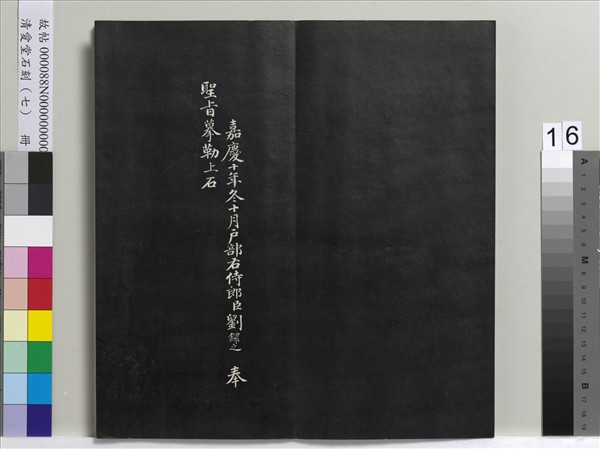 嘉慶十年冬十月戶部右侍郎臣劉鐶之奉
聖旨摹勒上石
故帖 000088N000000000
清愛堂石刻（七） 冊
16
A
1
2
3
4
5
6
7
8
9
10
M
11
12
13
14
15
B
17
18
19